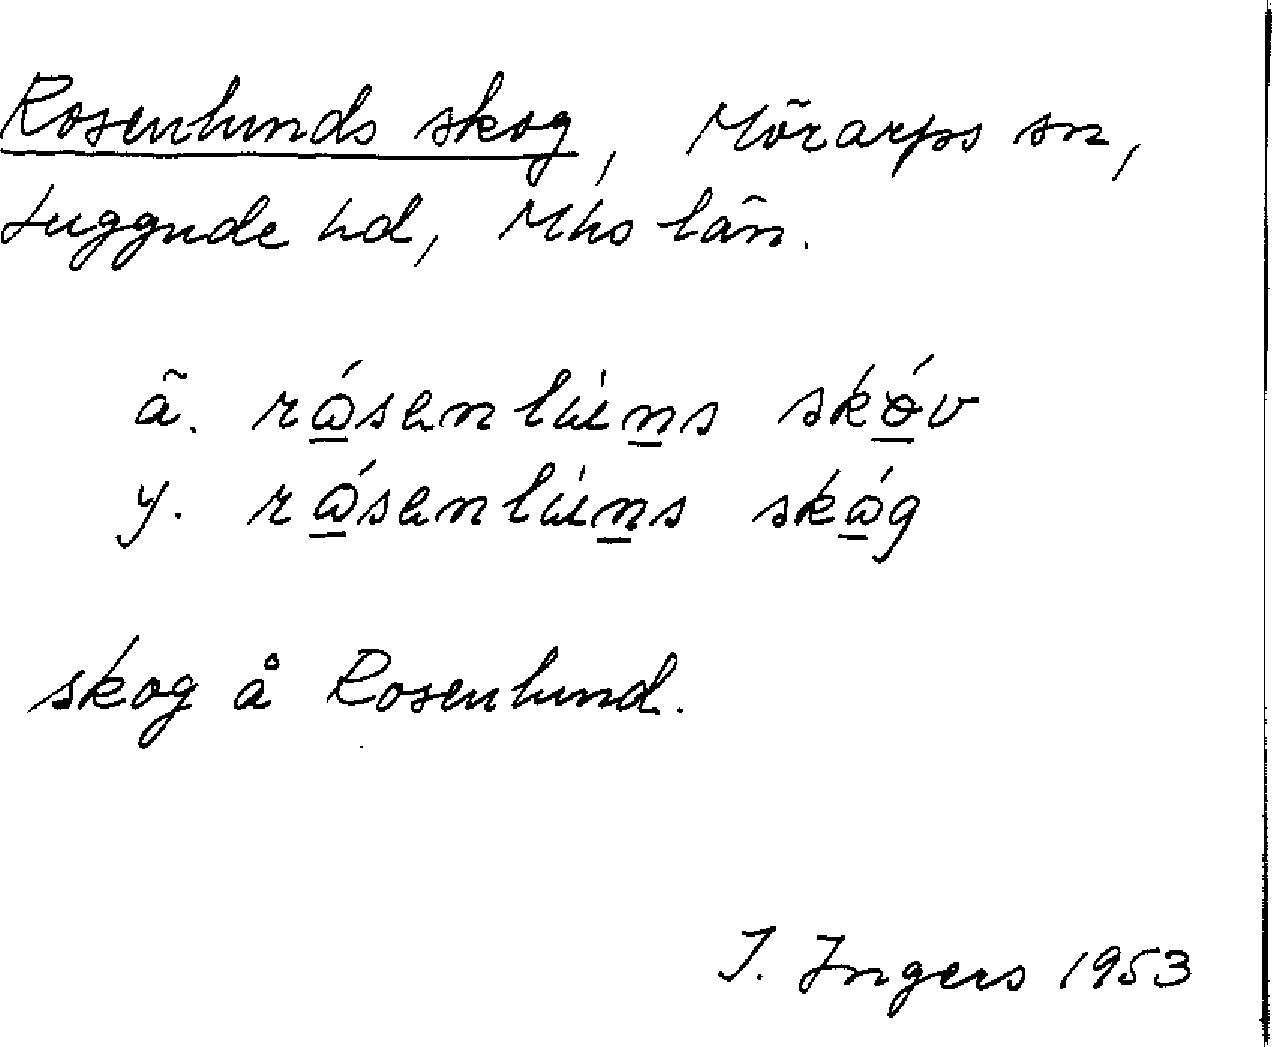 Rosenlunds skog, Mörarps sn,
Luggude hd, Mhs län.
ä. rósenlúns skóv
y. rósenlúns skóg
skog å Rosenlund.
I. Ingers 1953